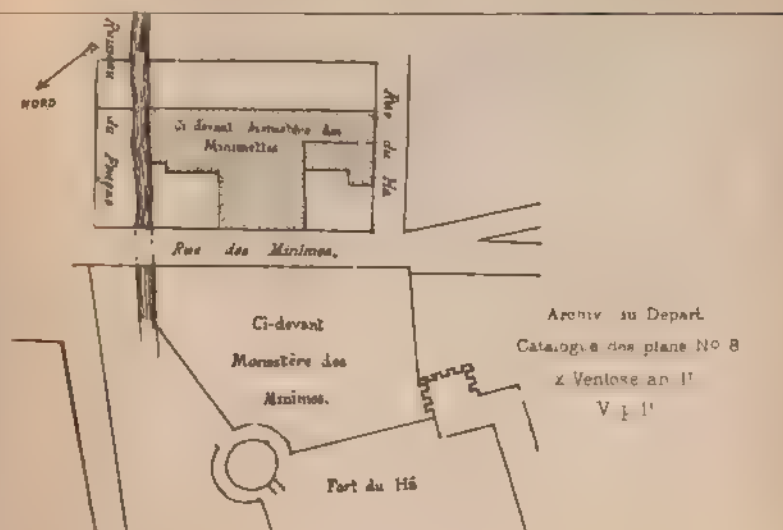 NORD
Ruisseau du Peugue
Ci devant Monastère des
Minimettes
Rue du Hâ
Rue des Minimes.
Ci-devant
Monastère des
Minimes.
Fort du Hâ
Archiv du Depart.
Catalogue des plans No 8
x Ventose an II
V p